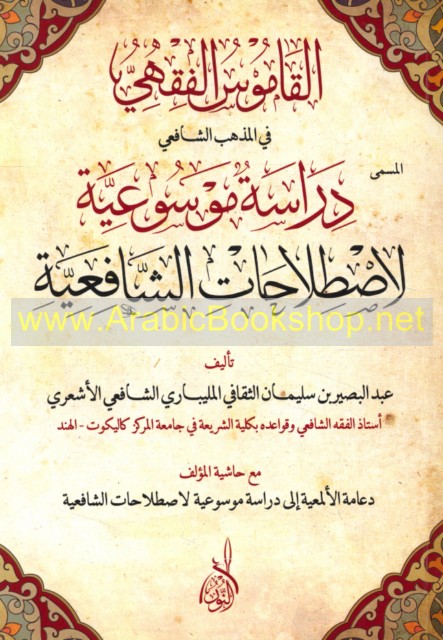 القاموس الفقهي
في المذهب الشافعي
المسمى
دراسة موسوعية
لاصطلاحات الشافعية
www.ArabicBookshop.net
تأليف
عبد البصير بن سليمان الثقافي المليباري الشافعي الأشعري
أستاذ الفقه الشافعي وقواعده بكلية الشريعة في جامعة المركز كاليكوت - الهند
مع حاشية المؤلف
دعامة الألمعية إلى دراسة موسوعية لاصطلاحات الشافعية